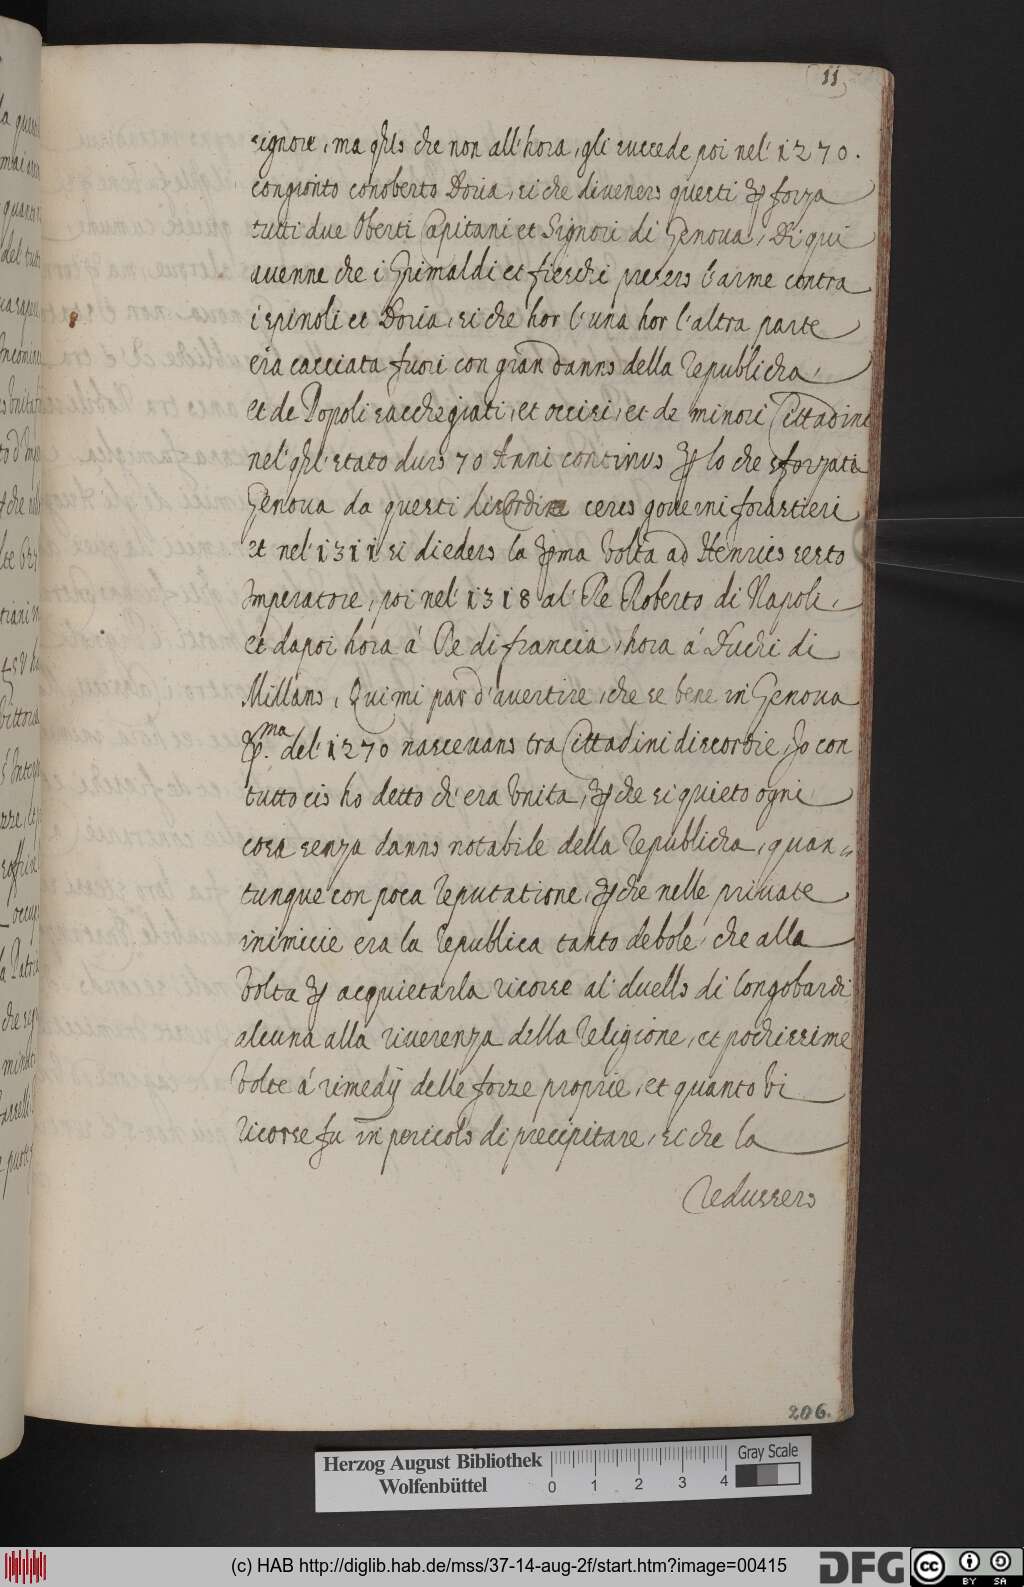 11
signore, ma qlo che non all'hora, gli succede poi nel' 1270.
congionto conoberto Doria, si che diuenero questi p forza
tutti due Oberti Capitani et Signori di Genoua, Di qui
auenne che i Grimaldi et fieschi presero l'arme contra
i spinoli et Doria, si che hor l'una hor l'altra parte
era cacciata fuori con gran danno della Republicha,
et de Popoli sacchegiati, et occisi, et de minori Cittadini
nel' ql' stato duro 70 Anni continus p lo che sforzata
Genoua da questi discordine ceres gouerni forastieri
et nel' 1311 si diedero la pma volta ad Henrico sesto
Imperatore, poi nel' 1318 al' Re Roberto di Napoli,
et dapoi hora á Re di francia, hora á Duchi di
Millano, Qui mi par d'auertire, che se bene in Genoua
p.ma del' 1270 nasceuano tra Cittadini discordie, Io con
tutto cio ho detto ch' era vnita, p che si quieto ogni
cosa senza danno notabile della Republicha, quan=
tunque con poca Reputatione, p che nelle priuate
inimicie era la Republica tanto debole, che alla
volta p acquietarla ricorse al' duello di longobardi
alcuna alla riuerenza della Religione, et pochissime
volte á rimedij delle forze proprie, et quanto vi
ricorse fu in pericolo di precipitare, si che la
Redussero
206.
Herzog August Bibliothek
Wolfenbüttel
0 1 2 3 4
Gray Scale
(c) HAB http://diglib.hab.de/mss/37-14-aug-2f/start.htm?image=00415
DFG
cc BY SA